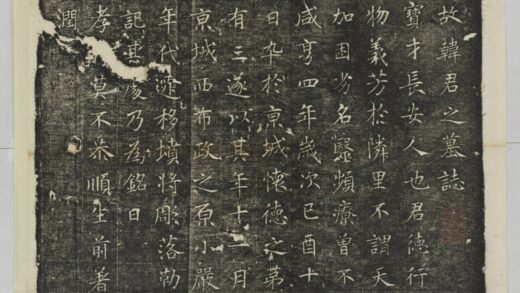 故韓君之墓誌
寶才長安人也君德行
物義芳於隣里不謂天
加困劣名醫頻療曾不
咸亨四年歲次己酉十
日卒於京城懷德之第
有三遂以其年十二月
京城西布政之原小嚴
年代遷移墳將彫落勒
記其後乃為銘曰
孝莫不恭順生前著
潤